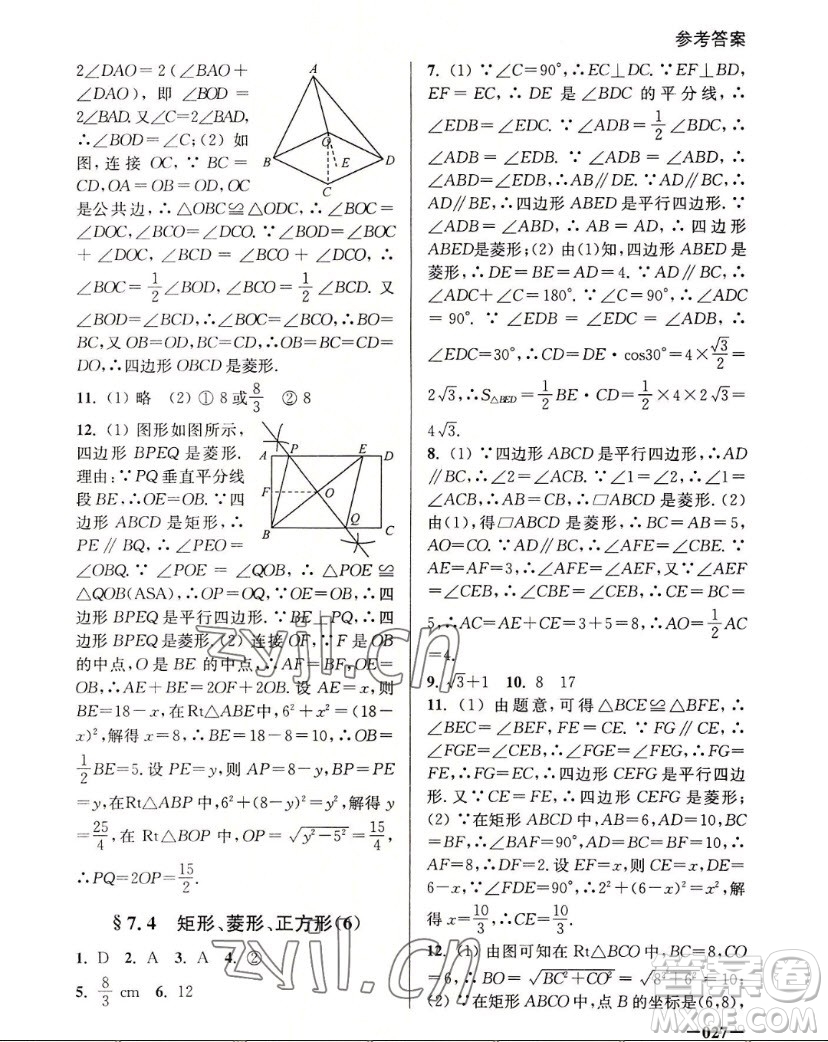 参考答案
2∠DAO=2(∠BAO+
∠DAO),即 ∠BOD=
2∠BAD.又∠C=2∠BAD,
∴∠BOD=∠C;(2) 如
图,连接 OC,∵ BC=
CD,OA=OB=OD,OC
是公共边,∴△OBC≌△ODC,∴∠BOC=
∠DOC,∠BCO=∠DCO.∵∠BOD=∠BOC
+∠DOC,∠BCD =∠BCO+∠DCO,∴
∠BOC=1/2∠BOD,∠BCO=1/2∠BCD.又
∠BOD=∠BCD,∴∠BOC=∠BCO,∴BO=
BC,又OB=OD,BC=CD,∴OB=BC=CD=
DO,∴四边形 OBCD 是菱形.
11. (1) 略 (2) ① 8或8/3 ② 8
12. (1) 图形如图所示,
四边形 BPEQ 是菱形.
理由:∵PQ垂直平分线
段BE,∴OE=OB.∵四
边形 ABCD 是矩形,∴
PE∥BQ,∴∠PEO=
∠OBQ.∵∠POE =∠QOB,∴△POE≌
△QOB(ASA),∴OP=OQ.∵OE=OB,∴四
边形 BPEQ 是平行四边形.∵BE⊥PQ,∴四
边形 BPEQ 是菱形;(2) 连接 OF,∵F 是OB
的中点,O 是 BE 的中点,∴AF=BF,OE=
OB,∴AE+BE=2OF+2OB=18.设AE=x,则
BE=18-x,在Rt△ABE中,6²+x²=(18-
x)²,解得 x=8,∴BE=18-8=10,∴OB=
1/2BE=5.设 PE=y,则 AP=8-y,BP=PE
=y,在Rt△ABP中,6²+(8-y)²=y²,解得 y
=25/4,在 Rt△BOP 中,OP=√(y²-5²)=15/4,
∴PQ=2OP=15/2.
§7.4 矩形、菱形、正方形(6)
1. D 2. A 3. A 4. ②
5. 8/3 cm 6. 12
7. (1) ∵∠C=90°,∴EC⊥DC.∵EF⊥BD,
EF=EC,∴DE 是∠BDC 的平分线,∴
∠EDB=∠EDC.∵∠ADB=1/2∠BDC,∴
∠ADB =∠EDB.∵∠ADB =∠ABD,∴
∠ABD=∠EDB,∴AB∥DE.∵四边形
AD∥BE,∴四边形 ABED 是平行四边形.∵
∠ADB=∠ABD,∴AB=AD,∴四边形
ABED是菱形;(2) 由(1)知,四边形 ABED 是
菱形,∴DE=BE=AD=4.∵AD∥BC,∴
∠ADC+∠C=180°.∵∠C=90°,∴∠ADC
=90°.∵∠EDB=∠EDC=∠ADB,∴
∠EDC=30°,∴CD=DE·cos30°=4×√3/2=
2√3,∴S△BED=1/2BE·CD=1/2×4×2√3=
4√3.
8. (1) ∵四边形 ABCD是平行四边形,∴AD
∥BC,∴∠2=∠ACB.∵∠1=∠2,∴∠1=
∠ACB,∴AB=CB,∴▱ABCD 是菱形.(2)
由(1),得▱ABCD 是菱形,∴BC=AB=5,
AO=CO.∵AD∥BC,∴∠AFE=∠CBE.∵
AE=AF=3,∴∠AFE=∠AEF.又∵∠AEF
=∠CEB,∴∠CBE=∠CEB,∴CE=BC=
5,∴AC=AE+CE=3+5=8,∴AO=1/2AC
=4.
9. √3+1 10. 8 17
11. (1) 由题意,可得△BCE≌△BFE,∴
∠BEC=∠BEF,FE=CE.∵FG∥CE,∴
∠FGE=∠CEB,∴∠FGE=∠FEG,∴FG
=FE,∴FG=EC,∴四边形 CEFG 是平行四边
形.又∵CE=FE,∴四边形 CEFG 是菱形;
(2) ∵在矩形ABCD 中,AB=6,AD=10,BC
=BF,∴∠BAF=90°,AD=BC=BF=10,∴
AF=8,∴DF=2.设 EF=x,则 CE=x,DE=
6-x,∵∠FDE=90°,∴2²+(6-x)²=x²,解
得 x=10/3,∴CE=10/3.
12. (1) 由图可知在Rt△BCO中,BC=8,CO
=6,∴BO=√(BC²+CO²)=√(8²+6²)=10;
(2) ∵在矩形 ABCO 中,点 B 的坐标是(6,8),
—027—
A
B
C
D
O
E
A
P
E
D
F
O
B
Q
C
zyjl.cn
zyjl.cn
答案圈